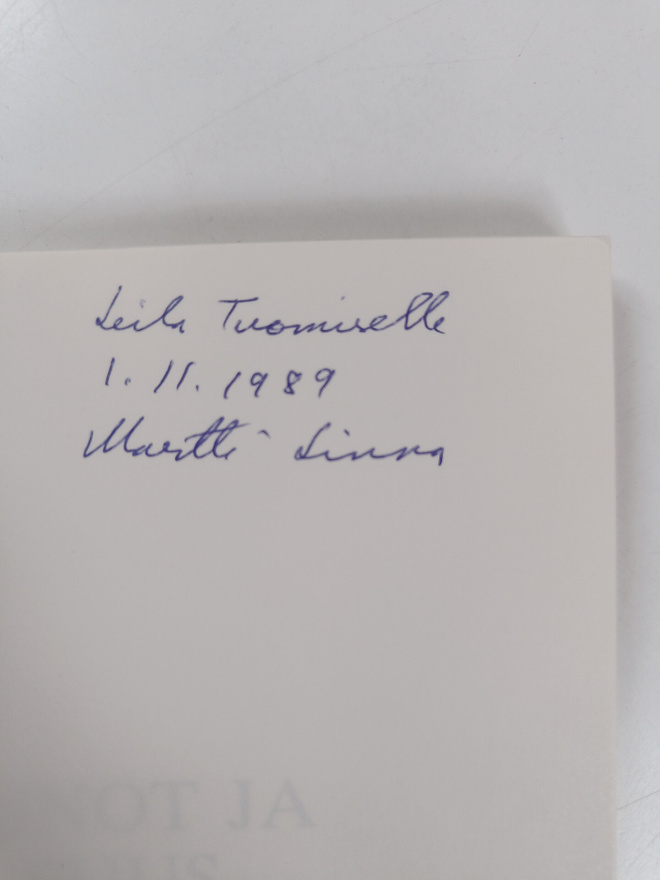 Leila Tuomiselle
1.11.1989
Martti Linna
NOT JA